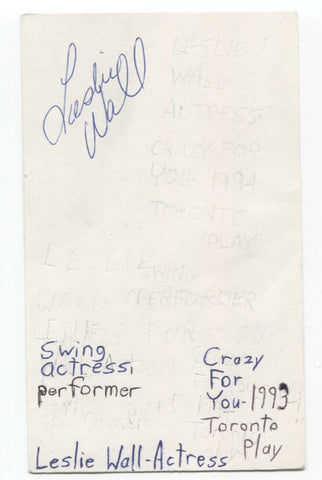 Leslie
Wall
LESLIE
WALL
ACTRESS
CRAZY FOR
YOU- 1994
TORONTO
PLAY
SWING
WALL PERFORMER
FOR
Swing
actress,
performer
Crazy
For
You-1993
Toronto
Play
Leslie Wall-Actress